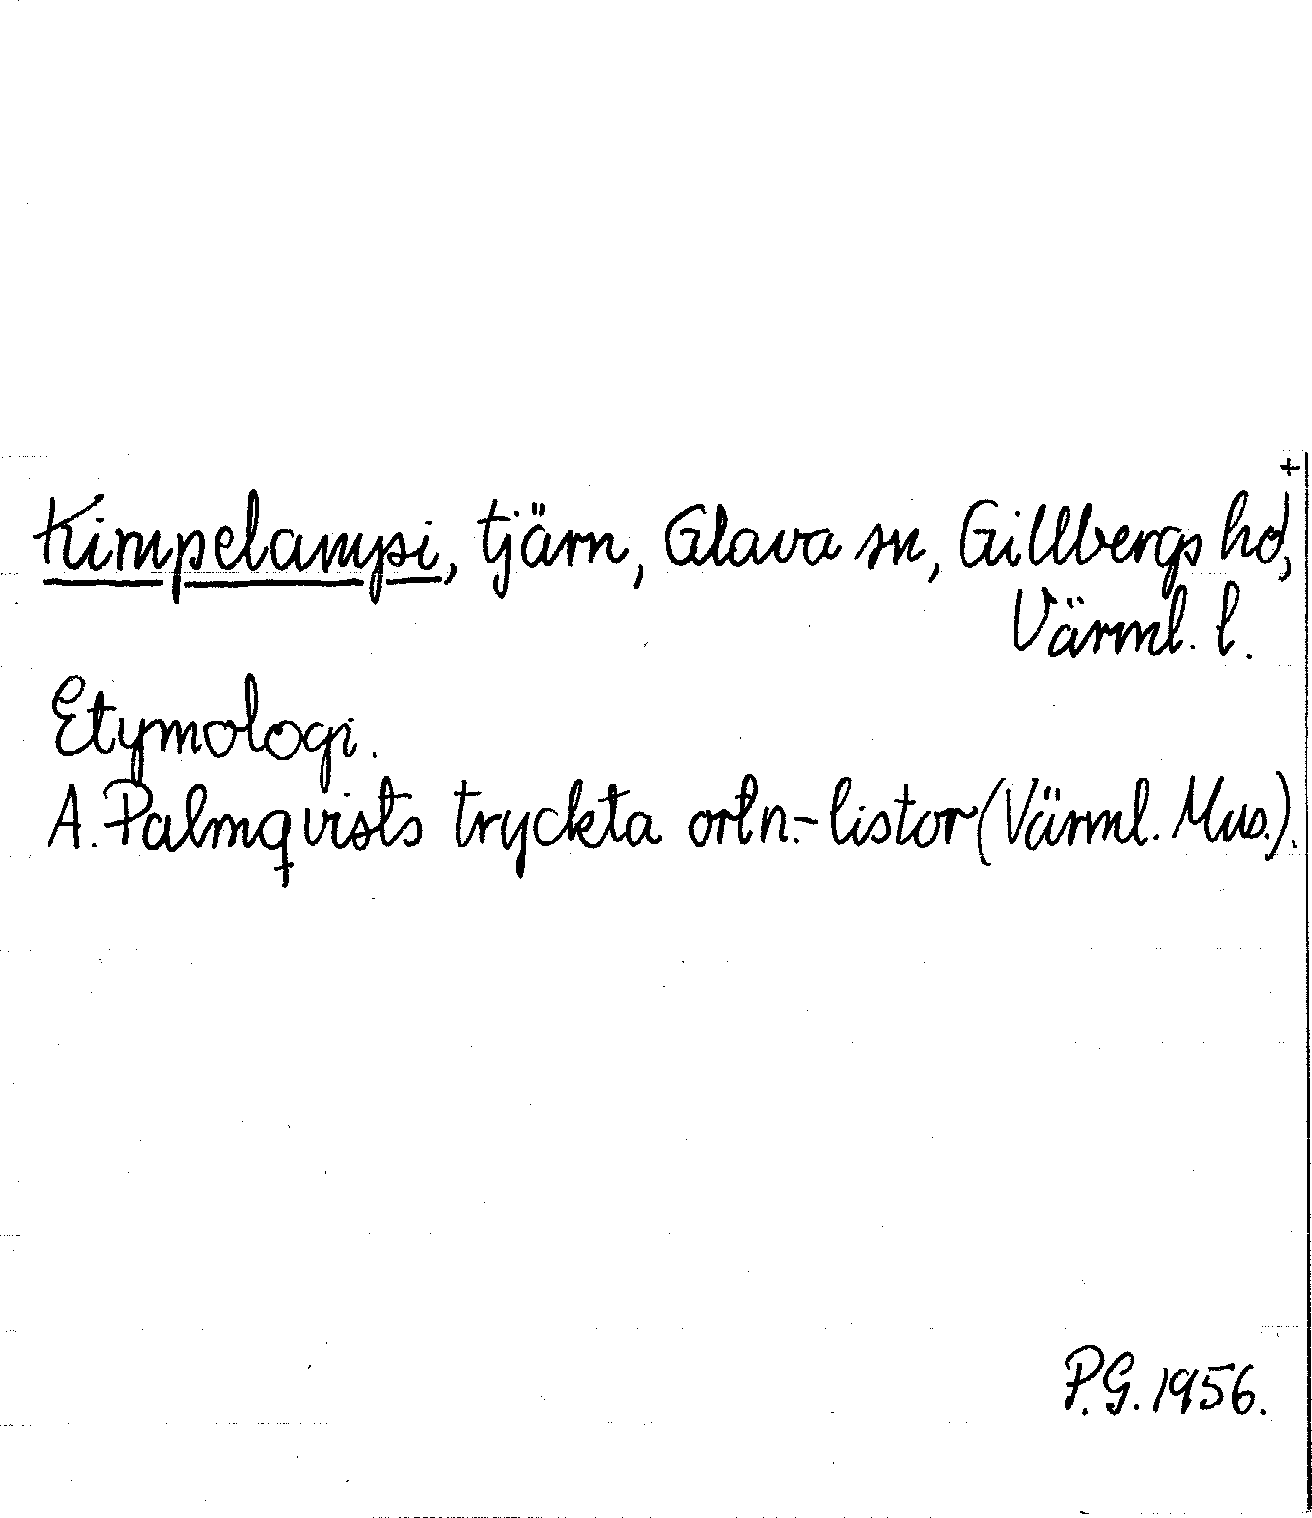 +
Kimpelampi, tjärn, Glava sn, Gillbergs hd,
Värml. l.
Etymologi.
A. Palmqvists tryckta ortn.-listor (Värml. Mus.).
P.G. 1956.